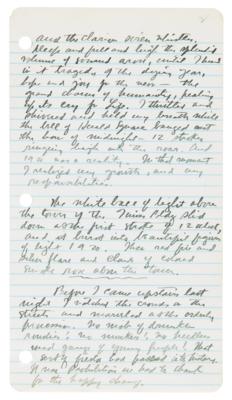 and the clarion siren whistles.
Deep and full and high the splendid
volume of sound arose, until I heard
in it tragedy of the dying year,
hope and joy for the new — the
grand chorus of humanity, pealing
of its cry for Life. I thrilled and
shivered and held my breath while
the bell of Herald Square banged out
the hour of midnight. 12 strokes,
ringing high into the roar. And
19 was a reality. In that moment
I realized my growth, and my
responsibilities.
The white ball of light above
the tower of the Times Bldg. slid
down as the first stroke of 12 struck,
and it burst into beautiful
of light 1920. Then red fire and
flare and clouds of colored
smoke rose above the tower.
Before I came upstairs last
night I watched the crowds in the
streets and marveled at the orderly
procession. No mob of drunken
rowdies, no, no reckless
mad gangs of young people! That
sort of has passed into history.
If prohibition we have to thank
for the happy change.